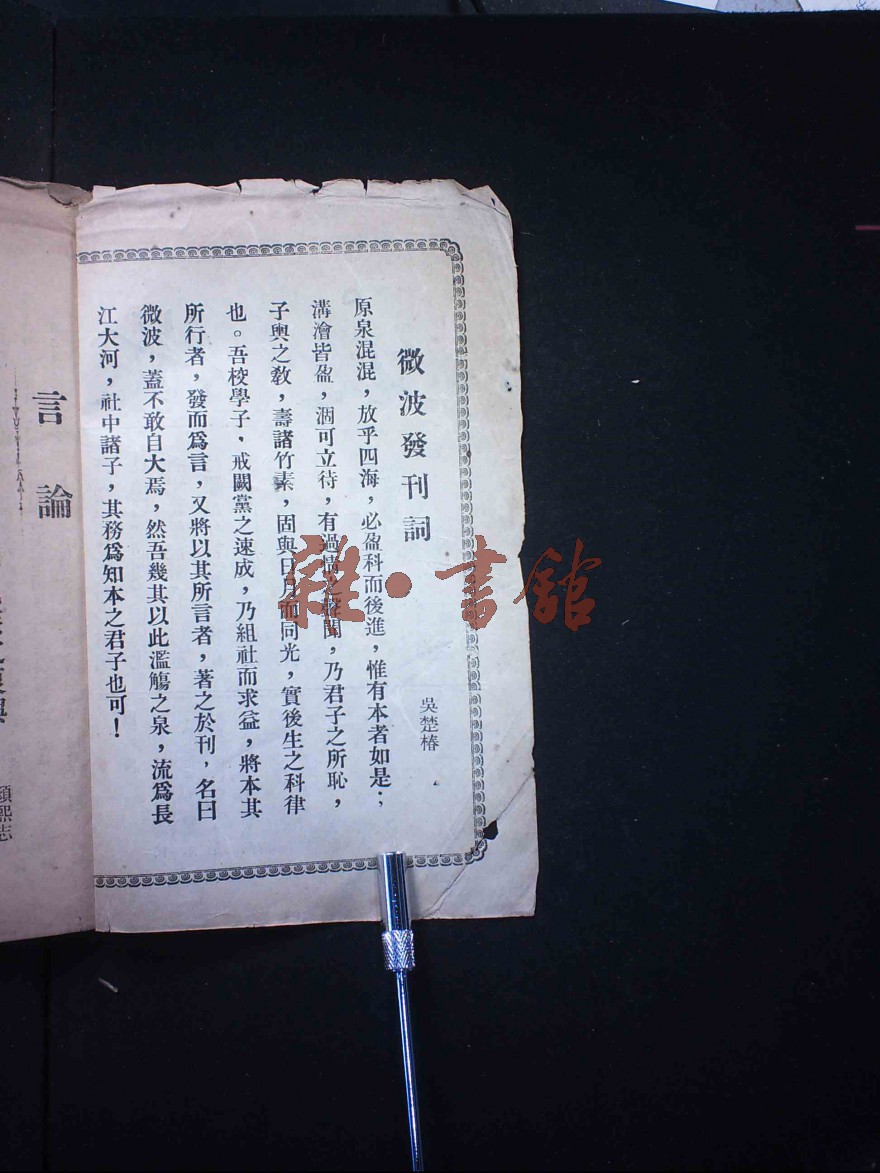 微波發刊詞
吳楚椿
原泉混混，放乎四海，必盈科而後進，惟有本者如是；
溝澮皆盈，涸可立待，有過情之聲聞，乃君子之所恥，
子輿之敎，壽諸竹素，固與日月而同光，實後生之科律
也。吾校學子，戒闕黨之速成，乃組社而求益，將本其
所行者，發而爲言，又將以其所言者，著之於刊，名曰
微波，蓋不敢自大焉，然吾幾其以此濫觴之泉，流爲長
江大河，社中諸子，其務爲知本之君子也可！
言論
顧熙志
雜•書館